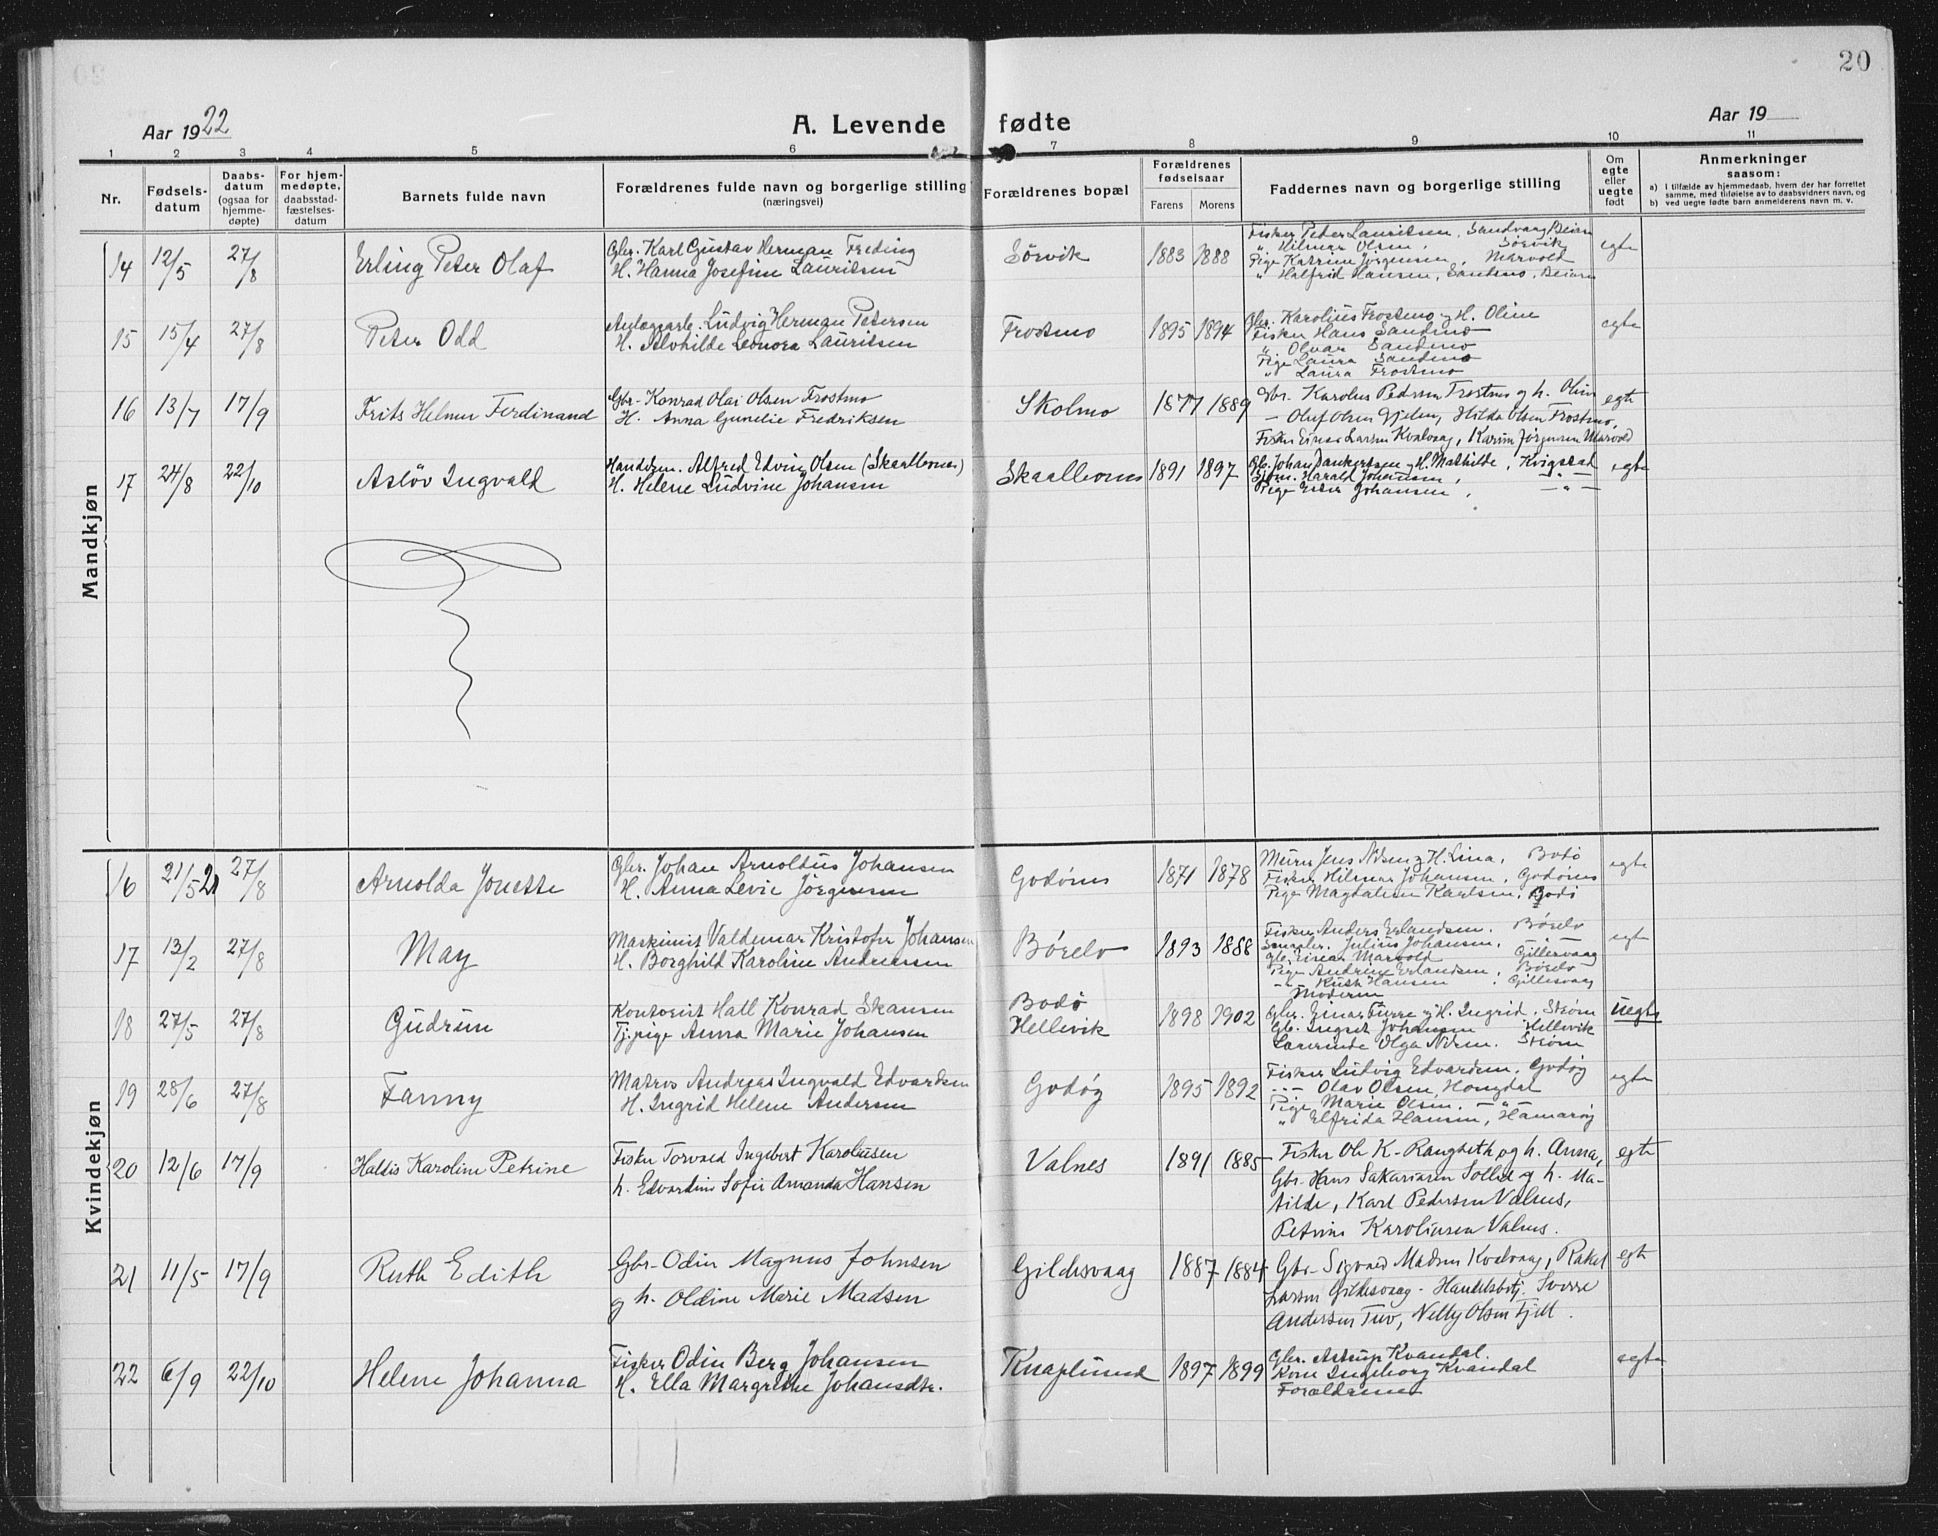 20
Aar 1922
A. Levende fødte
Aar 19
1 2 3 4 5 6 7 8 9 10 11
Nr.
Fødsels-datum
Daabs-datum (ogsaa for hjemme-døpte)
For hjem-medøpte, daabsstad-fæstelses-datum
Barnets fulde navn
Forældrenes fulde navn og borgerlige stilling (næringsvei)
Forældrenes bopæl
Forældrenes fødselsaar
Farens Morens
Faddernes navn og borgerlige stilling
Om egte eller uegte født
Anmerkninger saasom:
a) I tilfælde av hjemmedaab, hvem der har forrettet samme, med tilføielse av to daabsvidners navn, og
b) ved uegte fødte barn anmelderens navn m. v.
Mandkjøn
14 12/5 27/8 Erling Peter Olaf
Gbr. Karl Gustav Herman Freding
H. Hanna Josefine Lauritsen
Sörvik 1883 1888
Fisker Peter Lauritsen, Sandvaag Beiarn
" Hilmar Olsen, Sörvik
Pige Katrine Jörgensen, Marvold
" Halfrid Hansen, Sandmo, Beiarn
egte
15 15/4 27/8 Peter Odd
Anlægsarb. Ludvig Herman Petersen
H. Alvhilde Leonora Lauritsen
Frostmo 1895 1894
Gbr. Karolius Frostmo og H. Oline
Fisker Hans Sandmo
" Olvar Sandmo
Pige Laura Sandmo
" Laura Frostmo
egte
16 13/7 17/9 Frits Helmer Ferdinand
Gbr- Konrad Olai Olsen Frostmo
H. Anna Gunelie Fredriksen
Skolmo 1877 1889
Gbr. Karolus Pedersen Frostmo og h. Oline
- Oluf Olsen Gjelen, Hilda Olsen Frostmo,
Fisker Einar Larsen Kvalvaag, Karin Jörgensen Marvold
egte
17 24/8 22/10 Aslöv Ingvald
Handelsm. Alfred Edvin Olsen (Skaalbones)
H. Helene Ludvine Johansen
Skaalbones 1891 1897
Gb. Johan Dankertsen og H. Mathilde, Kvigstad
Harald Johansen, — " —
Pige Ester Johansen, — " —
egte
Kvindekjøn
16 21/5 21 27/8 Arnolda Jonette
Gbr. Johan Arnoldus Johansen
H. Anna Levie Jörgensen
Godönes 1871 1878
Murer Jens Nilsen og H. Lina, Bodö
Fisker Hilmar Johansen, Godönes
Pige Magdalene Karlsen, Bodö
egte
17 13/2 27/8 May
Maskinist Valdemar Kristofer Johansen
H. Borghild Karoline Andreassen
Börelv 1893 1888
Fisker Anders Erlandsen. Börelv
Julius Johansen, —
gb. Einar Marvold Gillesvaag
Pige Andrine Erlandsen, Börelv
— Ruth Hansen, Gillesvaag
Moderen
egte
18 27/5 27/8 Gudrun
Kontorist Hall Konrad Skansen
Tj.pige Anna Marie Johansen
Bodö
Hellivik
1898 1902
Gbr. Einar Furre og H. Ingrid, Ström
Gb. Ingvart Johansen Hellivik
Lærerinde Olga Nilsen. Ström
Uegte
19 28/6 27/8 Fanny
Matros Andreas Ingvald Edvardsen
H. Ingrid Helene Andersen
Godöy 1895 1892
Fisker Ludvig Edvardsen, Godöy
- " - Olav Olsen, Hongdal
Pige Marie Olsen, — " —
" Elfrida Hansen, Hamaröy
egte
20 12/6 17/9 Haldis Karoline Petrine
Fisker Torvald Ingebert Karoliusen
h. Edvardine Sofie Amanda Hansen
Valnes 1891 1885
Fisker Ole K- Rangseth og h. Anna,
Gbr- Hans Sakariasen Sollid og h. Ma-
tilde, Karl Pedersen Valnes,
Petrine Karoliusen Valnes.
egte
21 11/5 17/9 Ruth Edith
Gbr- Odin Magnus Johnsen
og h. Oldine Marie Madsen
Gildesvaag 1887 1884
Gbr- Sigvald Madsen Kvalvaag, Rakel
Larsen Gildesvaag - Handelsbetj. Sverre
Andersen Tuv, Nelly Olsen Fjell.
egte
22 6/9 22/10 Helene Johanna
Fisker Odin Berg Johansen
H. Ella Margrethe Johansdtr.
Knaplund 1897 1899
Gbr. Astrup Kvandal.
Kone Ingeborg Kvandal
Forældrene
egte